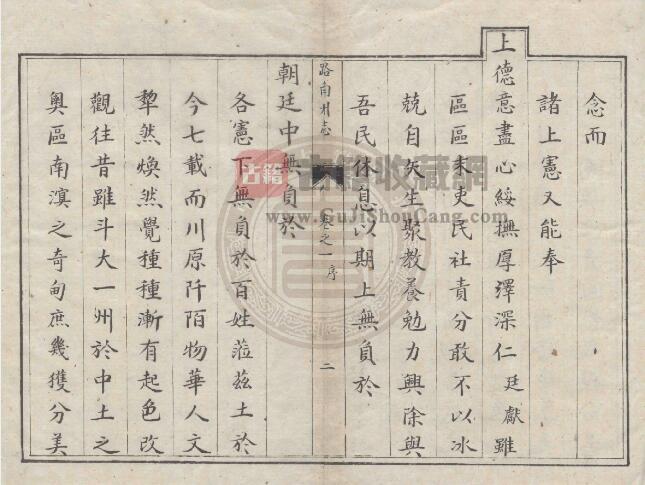 念而
諸上憲又能奉
上德意盡心綏撫厚澤深仁廷獻雖
區區末吏民社責分敢不以冰
兢自矢生聚教養勉力興除與
吾民休息以期上無負於
路南州志 卷之一序 二
朝廷中無負於
各憲下無負於百姓蒞茲土於
今七載而川原阡陌物華人文
犂然煥然覺種種漸有起色改
觀往昔雖斗大一州於中土之
奧區南滇之奇甸庶幾獲分美
古籍 古籍收藏网
www.GuJiShouCang.com